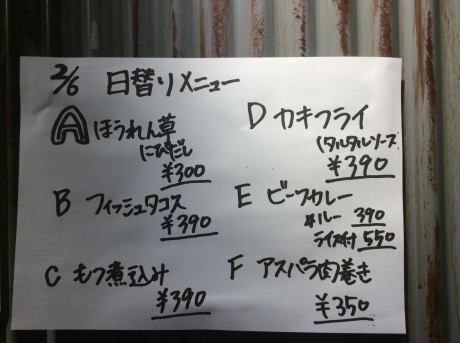 2/6 日替りメニュー
A ほうれん草
にびだし
¥300
B フィッシュタコス
¥390
C もつ煮込み
¥390
D カキフライ
(タルタルソース
¥390
E ビーフカレー
ルー 390
ライス付 550
F アスパラ肉巻き
¥350